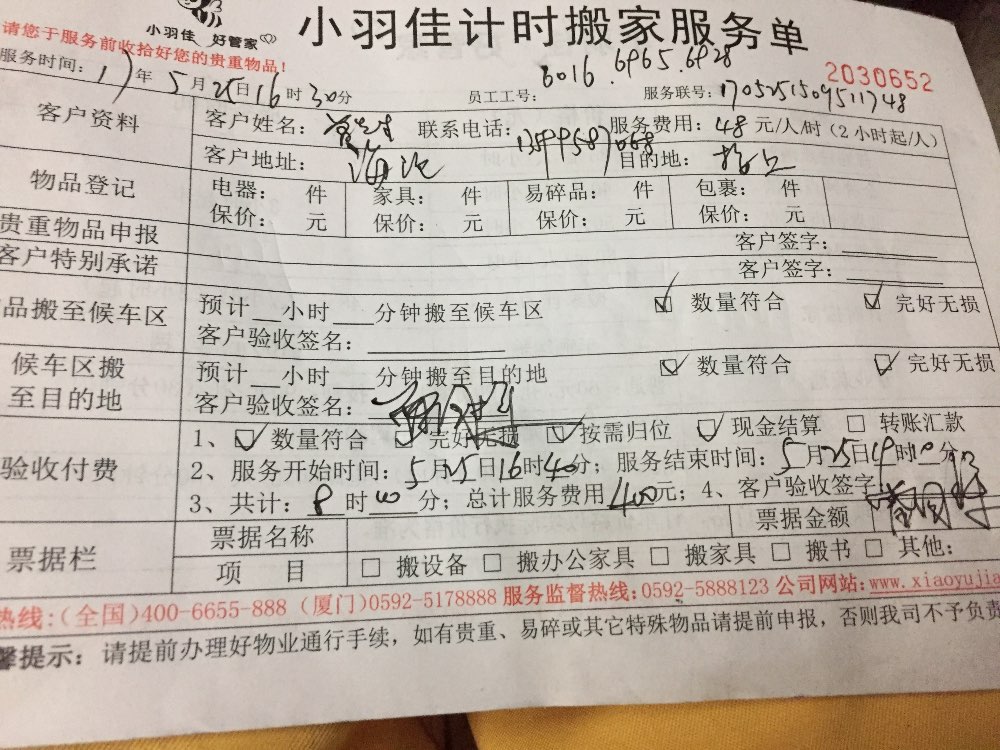 小羽佳 好管家
小羽佳计时搬家服务单
请您于服务前收拾好您的贵重物品!
2030652
服务时间: 17年5月25日16时30分 员工工号: 6016.6965.6928 服务联号: 170525150951748
客户资料
客户姓名: 联系电话: 服务费用: 48元/人/时(2小时起/人)
客户地址: 目的地:
物品登记
电器: 件 家具: 件 易碎品: 件 包裹: 件
保价: 元 保价: 元 保价: 元 保价: 元
贵重物品申报 客户签字:
客户特别承诺 客户签字:
品搬至候车区
预计 小时 分钟搬至候车区 ☑ 数量符合 ☑ 完好无损
客户验收签名:
候车区搬至目的地
预计 小时 分钟搬至目的地 ☑ 数量符合 ☑ 完好无损
客户验收签名:
验收付费
1、☑ 数量符合 ☑ 完好无损 ☑ 按需归位 ☑ 现金结算 □ 转账汇款
2、服务开始时间: 5月25日16时40分; 服务结束时间: 5月25日19时10分
3、共计: 8时 分; 总计服务费用400元; 4、客户验收签字:
票据栏
票据名称 票据金额
项 目 □ 搬设备 □ 搬办公家具 □ 搬家具 □ 搬书 □ 其他:
热线:(全国)400-6655-888 (厦门)0592-5178888 服务监督热线:0592-5888123 公司网站:www.xiaoyujia
馨提示: 请提前办理好物业通行手续,如有贵重、易碎或其它特殊物品请提前申报,否则我司不予负责